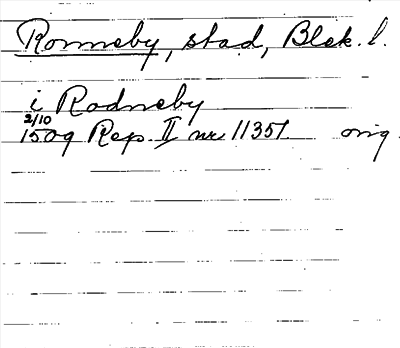 Ronneby, stad, Blek. l.
i Rodneby
2/10
1509 Rep. II nr 11351 orig.